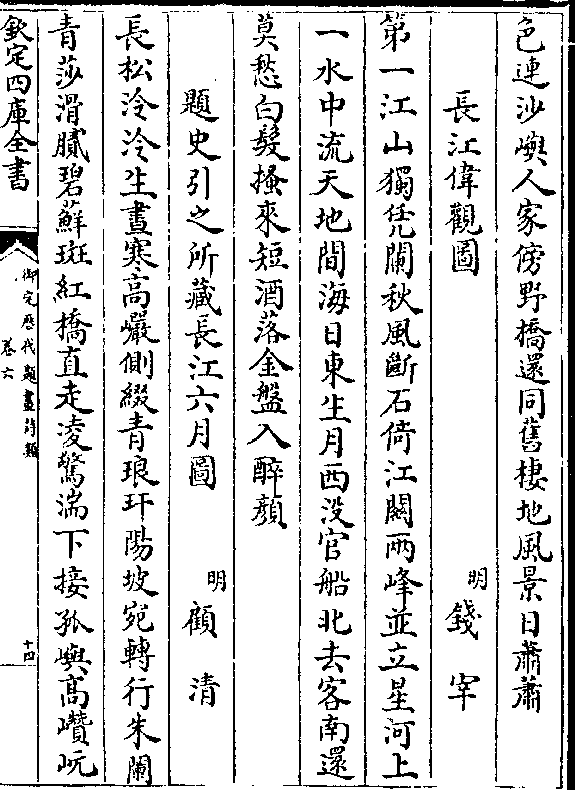 色連沙嶼人家傍野橋還同舊棲地風景日蕭蕭
長江偉觀圖
明 錢宰
第一江山獨凭闌秋風斷石倚江關兩峰並立星河上
一水中流天地間海日東生月西没官船北去客南還
莫愁白髮搔來短酒落金盤入醉顔
題史引之所藏長江六月圖
明 顧清
長松泠泠生晝寒高巖側綴青琅玕陽坡宛轉行朱闌
青莎滑膩碧蘚斑紅橋直走凌驚湍下接孤嶼髙巑岏
欽定四庫全書
御定歷代題畫詩類
卷六
十四